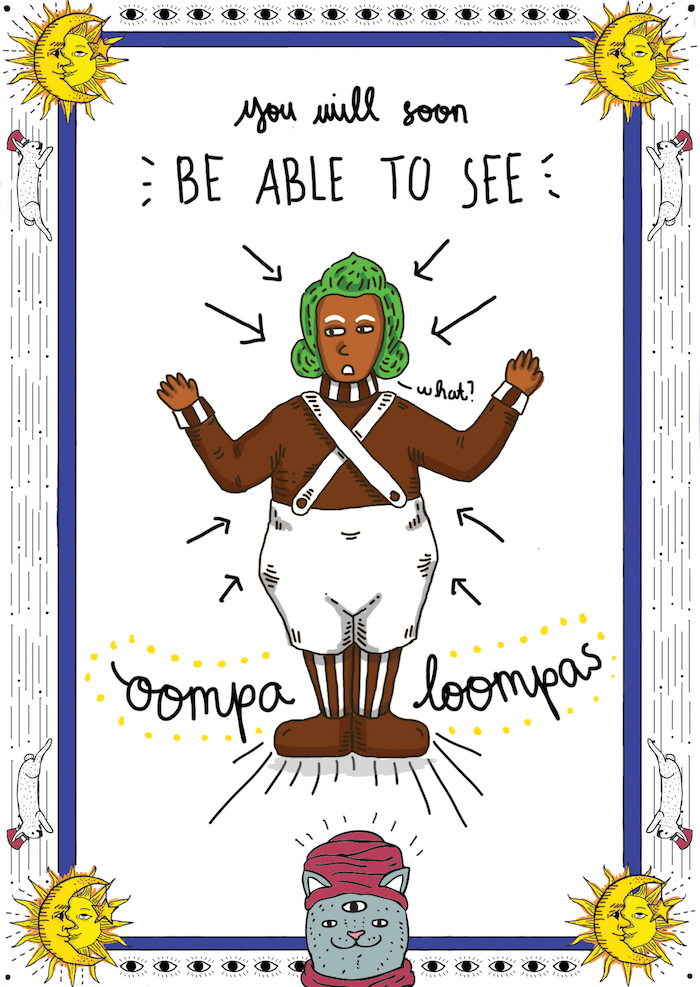 you will soon
BE ABLE TO SEE
what?
oompa loompas